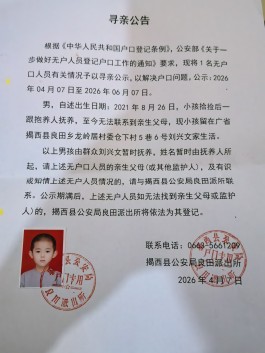 寻亲公告
根据《中华人民共和国户口登记条例》，公安部《关于进一
步做好无户人员登记户口工作的通知》要求，现将 1 名无户
口人员有关情况予以寻亲公示，以解决户口问题。公示：2026
年 04 月 07 日至 2026 年 06 月 07 日。
男，自述出生日期：2021 年 8 月 26 日，小孩捡拾后一
跟抱养人抚养，至今无法联系到亲生父母，现小孩留在广省
揭西县良田乡龙岭居村委仓下村 5 巷 6 号刘兴文家生活。
以上男孩由群众刘兴文暂时抚养，姓名暂时由抚养人所
起，请上述无户口人员的亲生父母（或其他监护人），及有识
或知情上述无户人员情况的，请与揭西县公安局良田派出所联
系。公示期满后，上述无户人员如无法找到亲生父母（或监护
人）的，揭西县公安局良田派出所将依法为其登记。
联系电话：0663-5661209
揭西县公安局良田派出所
2026 年 4 月 7 日